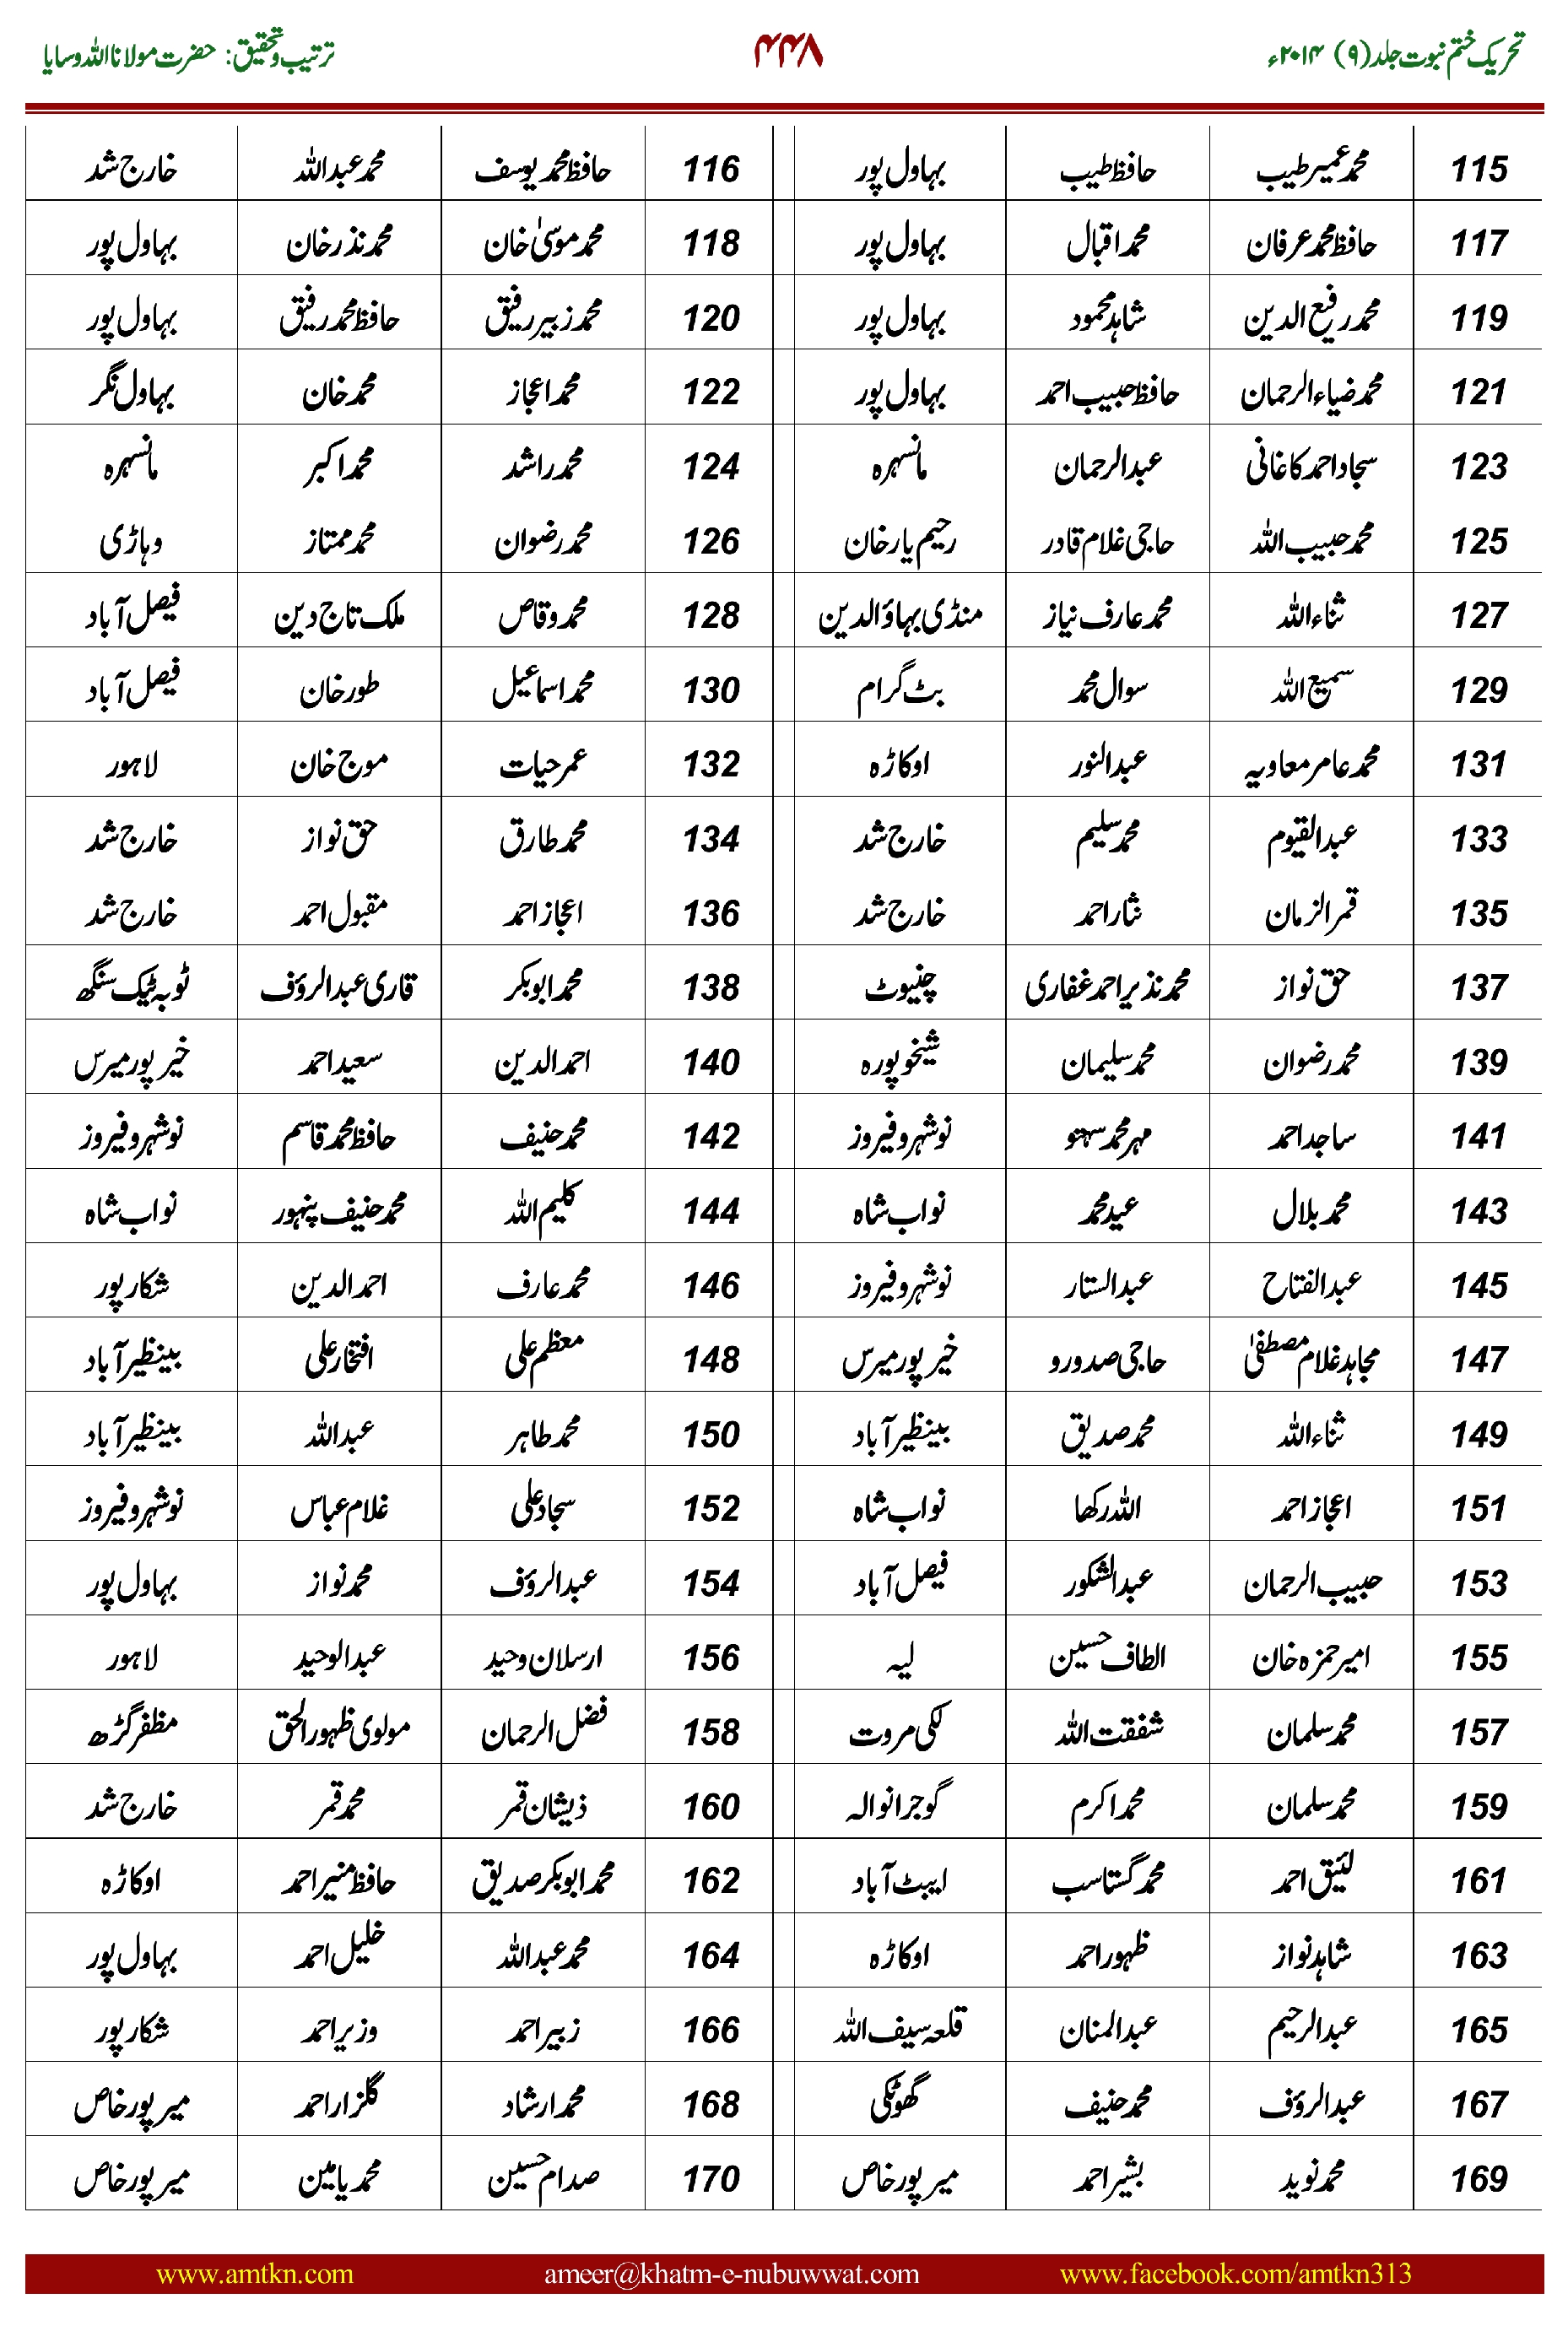 تحریک ختم نبوت جلد(۹) ۲۰۱۴ء ۴۴۸ ترتیب و تحقیق: حضرت مولانا اللہ وسایا
115 محمد عمیر طیب حافظ طیب بہاول پور 116 حافظ محمد یوسف محمد عبداللہ خارج شد
117 حافظ محمد عرفان محمد اقبال بہاول پور 118 محمد موسیٰ خان محمد نذر خان بہاول پور
119 محمد رفیع الدین شاہد محمود بہاول پور 120 محمد زبیر رفیق حافظ محمد رفیق بہاول پور
121 محمد ضیاء الرحمان حافظ حبیب احمد بہاول پور 122 محمد اعجاز محمد خان بہاول نگر
123 سجاد احمد کاغانی عبدالرحمان مانسہرہ 124 محمد راشد محمد اکبر مانسہرہ
125 محمد حبیب اللہ حاجی غلام قادر رحیم یار خان 126 محمد رضوان محمد ممتاز وہاڑی
127 ثناء اللہ محمد عارف نیاز منڈی بہاؤالدین 128 محمد وقاص ملک تاج دین فیصل آباد
129 سمیع اللہ سوال محمد بٹ گرام 130 محمد اسماعیل طور خان فیصل آباد
131 محمد عامر معاویہ عبدالنور اوکاڑہ 132 عمر حیات موج خان لاہور
133 عبدالقیوم محمد سلیم خارج شد 134 محمد طارق حق نواز خارج شد
135 قمرالزمان نثار احمد خارج شد 136 اعجاز احمد مقبول احمد خارج شد
137 حق نواز محمد نذیر احمد غفاری چنیوٹ 138 محمد ابوبکر قاری عبدالرؤف ٹوبہ ٹیک سنگھ
139 محمد رضوان محمد سلیمان شیخوپورہ 140 احمد الدین سعید احمد خیر پور میرس
141 ساجد احمد مہر محمد سہتو نوشہرو فیروز 142 محمد حنیف حافظ محمد قاسم نوشہرو فیروز
143 محمد بلال عید محمد نواب شاہ 144 کلیم اللہ محمد حنیف پنہور نواب شاہ
145 عبدالفتاح عبدالستار نوشہرو فیروز 146 محمد عارف احمد الدین شکار پور
147 مجاہد غلام مصطفیٰ حاجی صدورو خیر پور میرس 148 معظم علی افتخار علی بینظیر آباد
149 ثناء اللہ محمد صدیق بینظیر آباد 150 محمد طاہر عبداللہ بینظیر آباد
151 اعجاز احمد اللہ رکھا نواب شاہ 152 سجاد علی غلام عباس نوشہرو فیروز
153 حبیب الرحمان عبدالشکور فیصل آباد 154 عبدالرؤف محمد نواز بہاول پور
155 امیر حمزہ خان الطاف حسین لیہ 156 ارسلان وحید عبدالوحید لاہور
157 محمد سلمان شفقت اللہ لکی مروت 158 فضل الرحمان مولوی ظہورالحق مظفر گڑھ
159 محمد سلمان محمد اکرم گوجرانوالہ 160 ذیشان قمر محمد قمر خارج شد
161 لئیق احمد محمد گستاسب ایبٹ آباد 162 محمد ابوبکر صدیق حافظ منیر احمد اوکاڑہ
163 شاہد نواز ظہور احمد اوکاڑہ 164 محمد عبداللہ خلیل احمد بہاول پور
165 عبدالرحیم عبدالمنان قلعہ سیف اللہ 166 زبیر احمد وزیر احمد شکار پور
167 عبدالرؤف محمد حنیف گھوٹکی 168 محمد ارشاد گلزار احمد میر پور خاص
169 محمد نوید بشیر احمد میر پور خاص 170 صدام حسین محمد یامین میر پور خاص
www.amtkn.com ameer@khatm-e-nubuwwat.com www.facebook.com/amtkn313